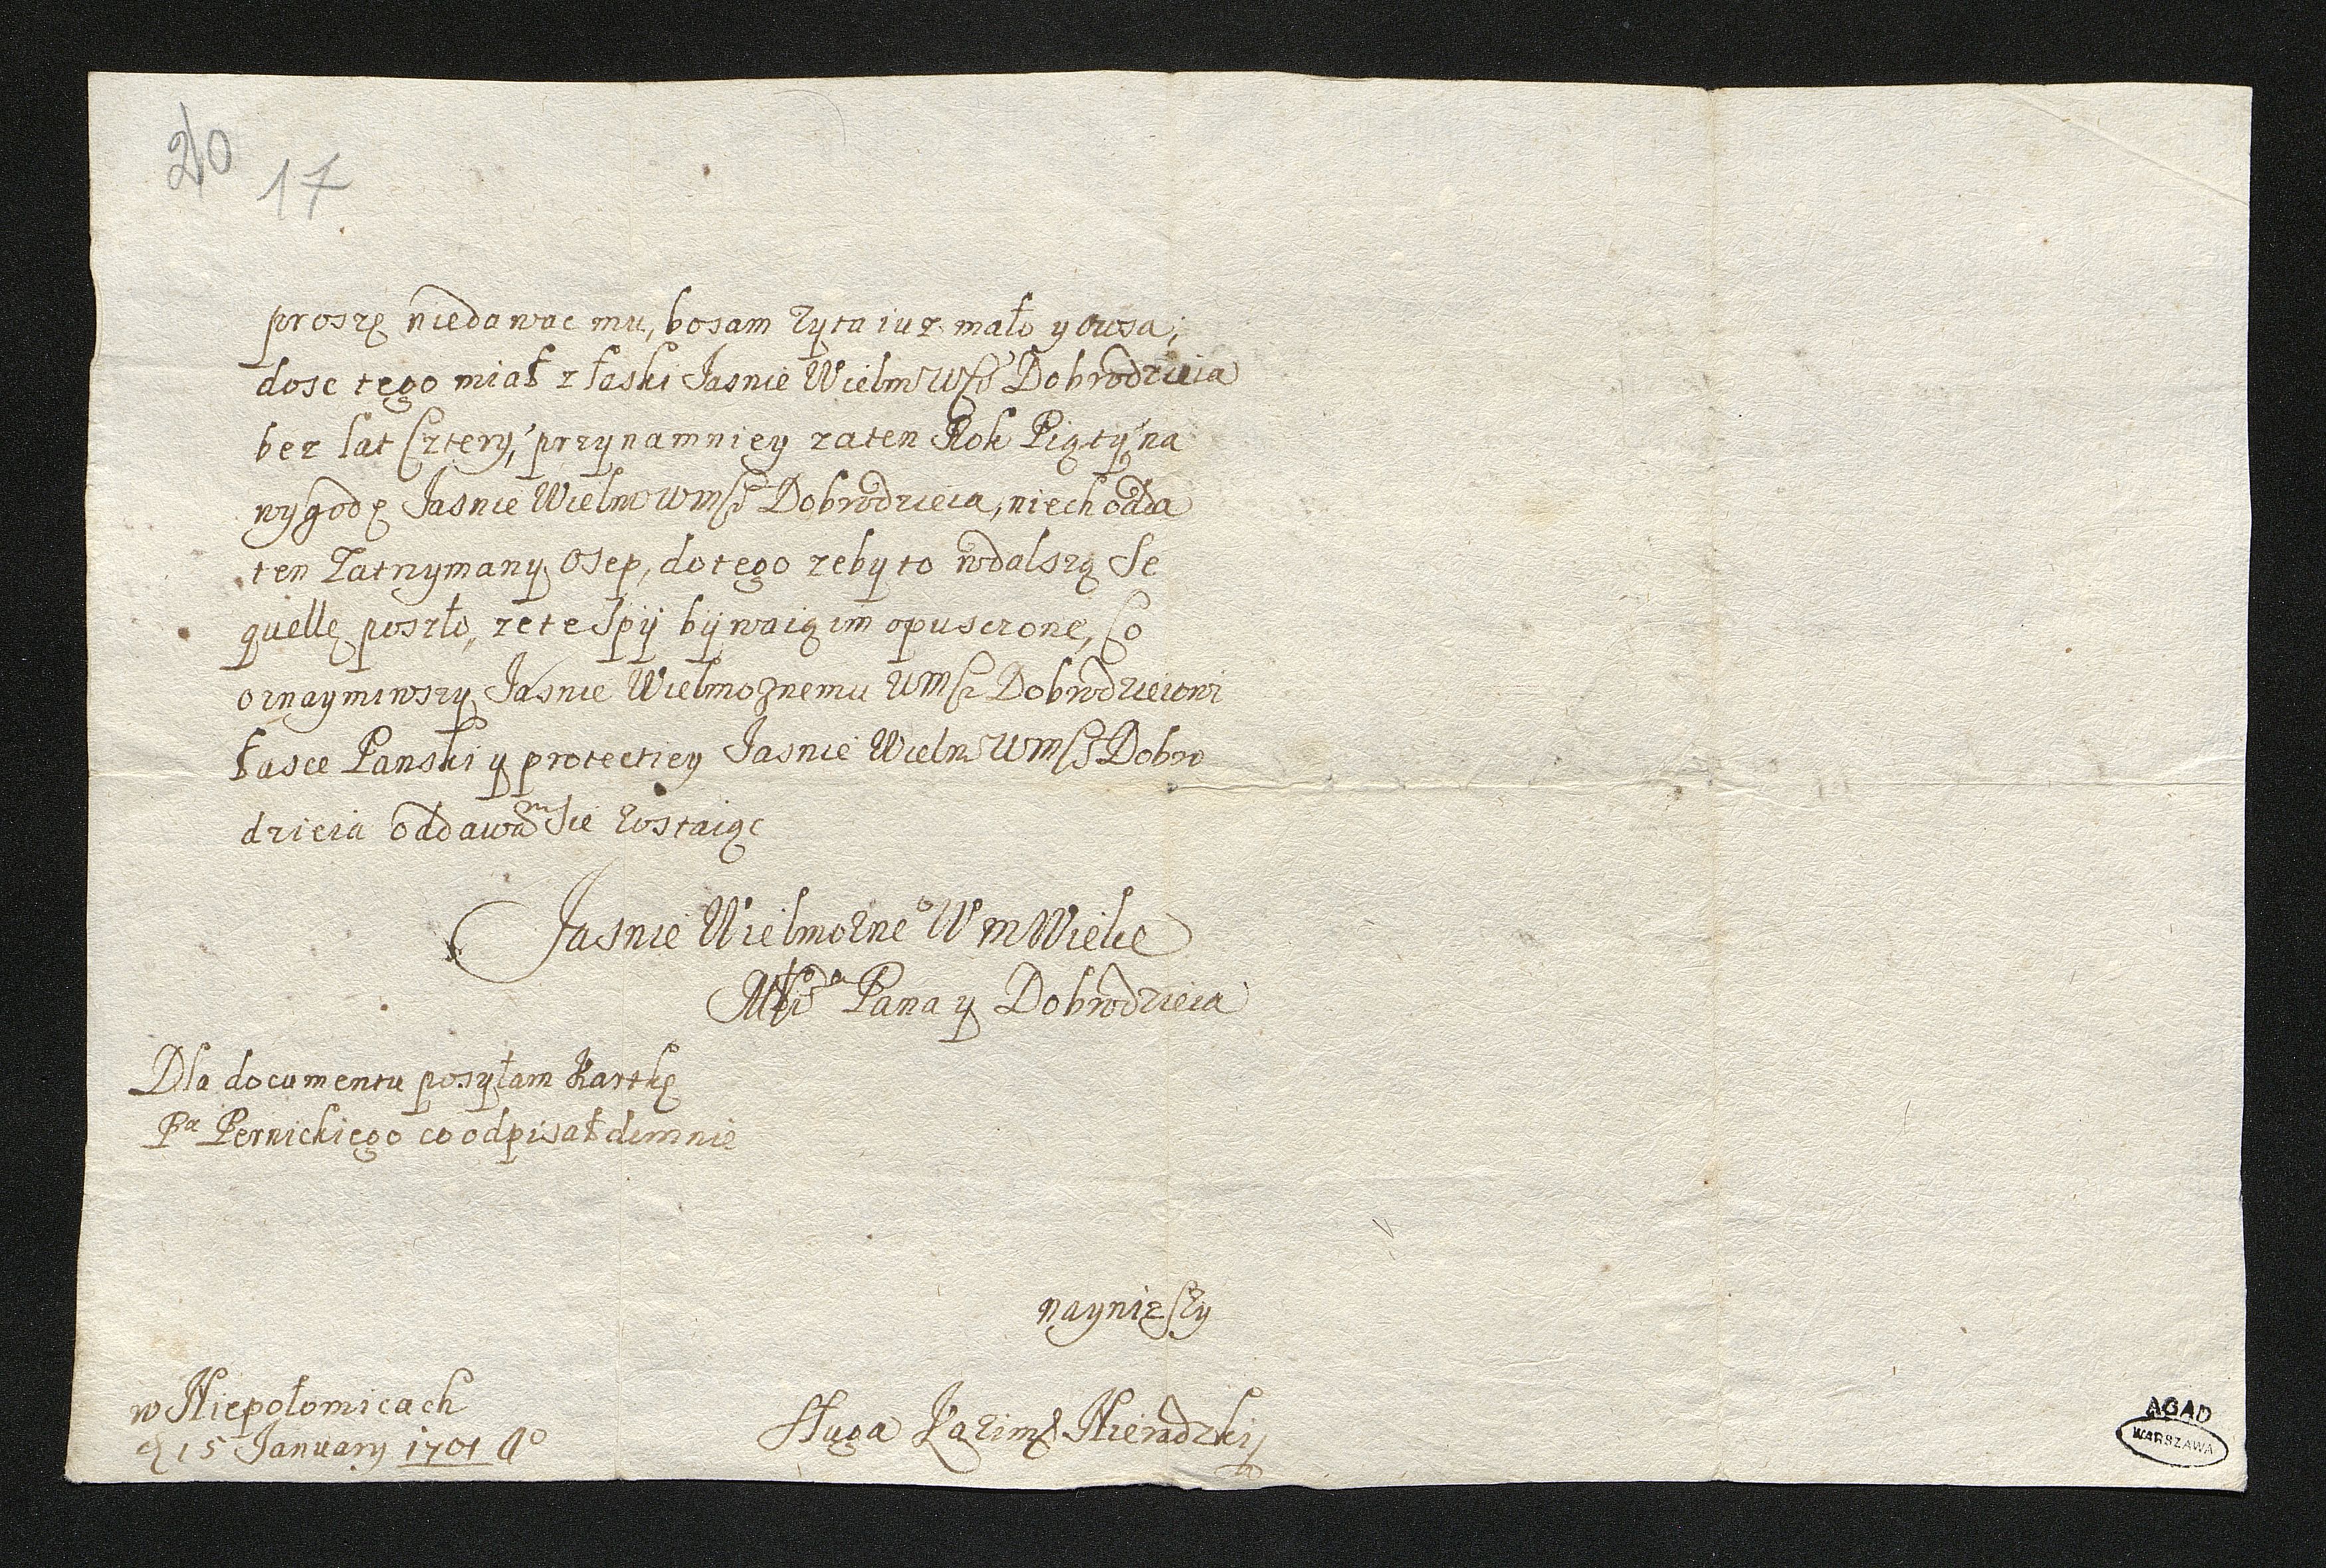 20
17
proszę niedawac mu, bosam zyta iuz mało y owsa;
dosc tego miał z łaski Jasnie Wielm WMści Dobrodzieia
bez lat Cztery, przynamniey zaten Rok Piąty na
wygodę Jasnie Wielm WMści Dobrodzieia, niech odda
ten Zatrzymany Osep, dotego zeby to wdalszą Se
quellę poszło, ze te Spij bywaią im opusczone, Co
oznaymiwszy Jasnie Wielmoznemu WMści Dobrodzieiowi
łasce Panski y protectiey Jasnie Wielm WMści Dobro
dzieia oddawam Sie zostaiąc
Jasnie Wielmozneo W M Wielce
Mściwo Pana y Dobrodzieia
Dla documentu posyłam Kartkę
Pa Pernickiego co odpisał domnie
nayniższy
w Niepołomicach
d 15 January 1701 Ao
Sługa Kazimi Nieradzki
AGAD
WARSZAWA